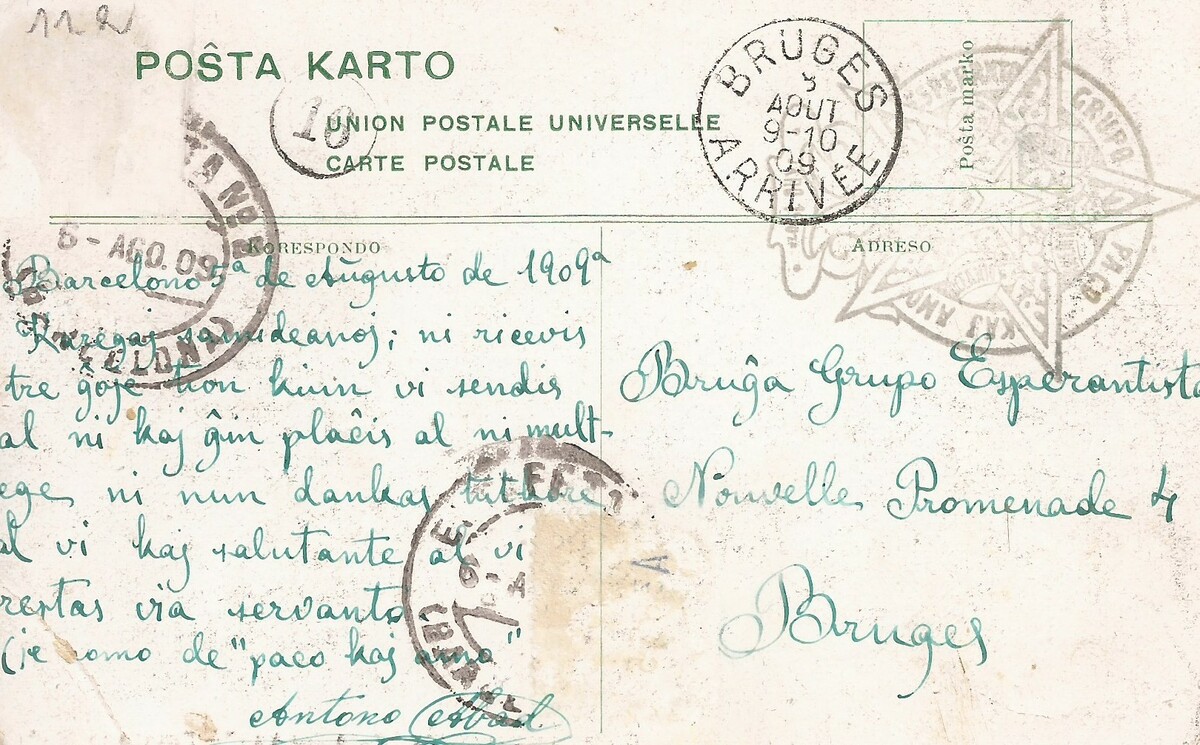 112
POŜTA KARTO
10
UNION POSTALE UNIVERSELLE
CARTE POSTALE
BRUGES
AOUT
9-10
09
ARRIVÉE
Poŝta marko
ESPERANTO GRUPO
PACO
KAJ AMO
5-AGO.09
KORESPONDO
ADRESO
Barcelono 5ª de Aŭgusto de 1909ª
Karegaj samideanoj; ni ricevis
tre ĝoje tion kiun vi sendis
al ni kaj ĝin plaĉis al ni mult-
ege ni nun dankas tutkore
al vi kaj salutante al vi
restas via servanto
(je nomo de "paco kaj amo"
Antono Abad
Bruĝa Grupo Esperantista
Nouvelle Promenade 4
Bruges